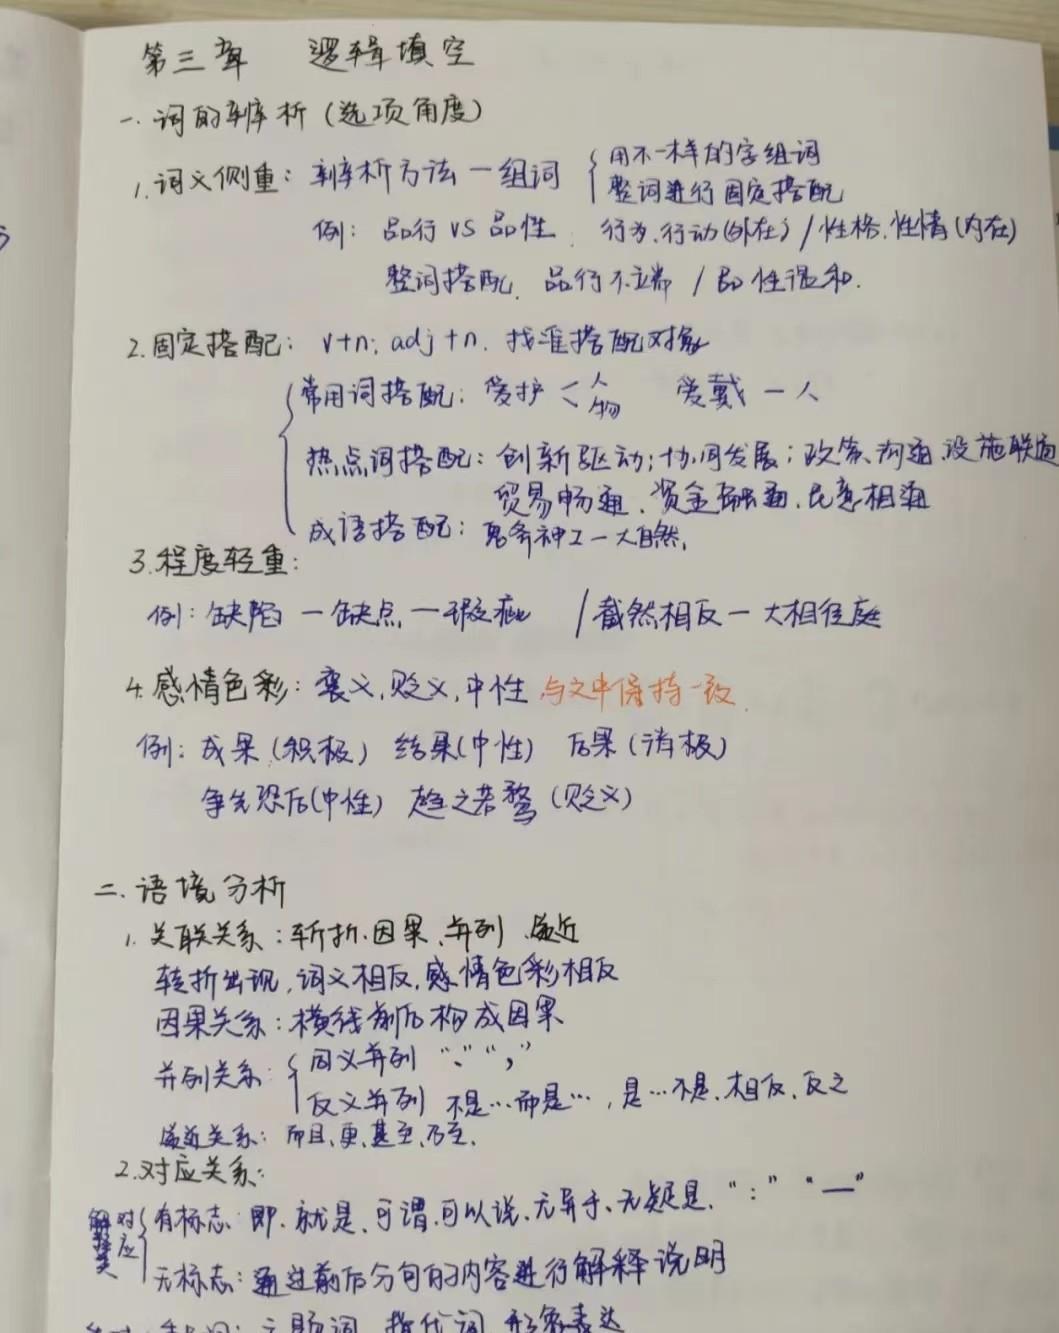 第三章 逻辑填空
一.词的辨析(选项角度)
1.词义侧重:辨析方法一组词 { 用不一样的字组词
整词进行固定搭配
例: 品行 VS 品性. 行为、行动(外在)/性格、性情(内在)
整词搭配. 品行不端 / 品性温和.
2.固定搭配: v+n; adj+n. 找准搭配对象
常用词搭配: 爱护 < 人 物 爱戴 一 人
热点词搭配: 创新驱动;协同发展;政策沟通、设施联通
贸易畅通、资金融通、民意相通
成语搭配: 鬼斧神工一大自然.
3.程度轻重:
例: 缺陷 一 缺点 一 瑕疵 / 截然相反 一 大相径庭
4.感情色彩: 褒义,贬义,中性 与文中保持一致.
例: 成果(积极) 结果(中性) 后果(消极)
争先恐后(中性) 趋之若鹜(贬义)
二.语境分析
1.关联关系:转折、因果、并列、递近
转折出现,词义相反,感情色彩相反
因果关系:横线前后构成因果
并列关系: { 同义并列 “、” “,”
反义并列 不是…而是…,是…不是、相反、反之
递近关系: 而且、更、甚至、乃至.
2.对应关系:
解释类对应 { 有标志: 即、就是、可谓、可以说、无异于、无疑是、“:” “—”
无标志: 通过前后分句的内容进行解释说明
主题词 指代词 形象表达